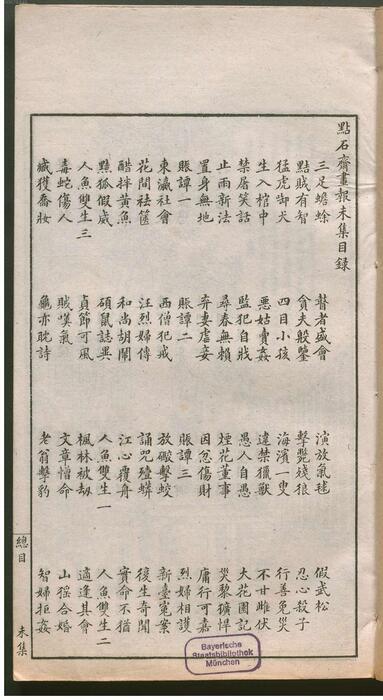 點石齋畫報未集目錄
三足蟾蜍 瞽者盛會 演放氣毬 假武松
黠賊有智 貪夫殷鑒 擊斃殘狼 忍心殺子
猛虎啣犬 四目小孩 海濱一叟 行善免災
生入棺中 惡姑賣姦 違禁獵獸 不甘雌伏
禁屠笑話 監犯自戕 愚人自愚 大花園記
止雨新法 尋春無賴 煙花董事 災黎獷悍
置身無地 弃妻虐妾 因忿傷財 庸行可嘉
賬譚一 賬譚二 賬譚三 烈婦相護
東瀛社會 西僧犯戒 放礮擊蛟 新臺冤案
花間袪篋 汪烈婦傳 誦咒殪蟒 復生奇聞
醋拌黃魚 和尚胡鬧 江心覆舟 實命不猶
黠狐假威 碩鼠誌異 人魚雙生一 人魚雙生二
人魚雙生三 貞節可風 楓林被劫 適逢其會
毒蛇傷人 賊嘆氣 文章憎命 山徭合婚
臧獲喬妝 龜亦耽詩 老翁擊豹 智婦拒姦
總目 未集
Bayerische
Staatsbibliothek
München